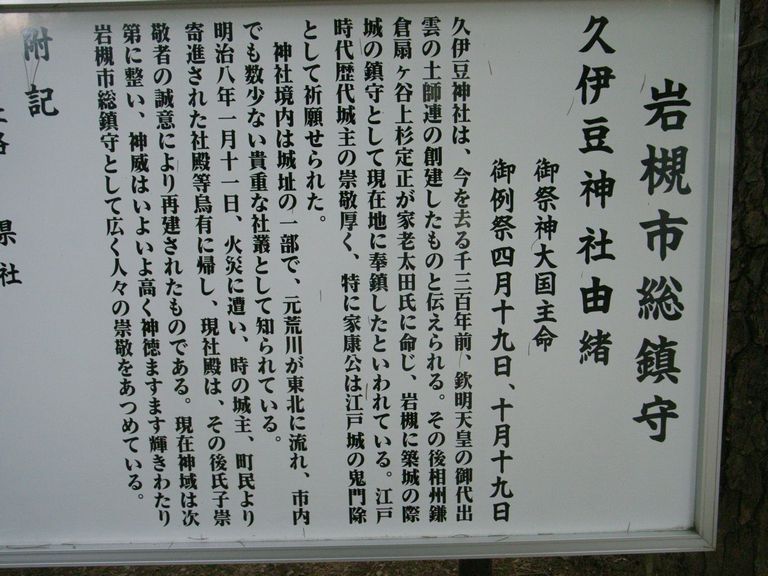 岩槻市総鎮守
久伊豆神社由緒
御祭神大国主命
御例祭四月十九日、十月十九日
久伊豆神社は、今を去る千三百年前、欽明天皇の御代出
雲の土師連の創建したものと伝えられる。その後相州鎌
倉扇ヶ谷上杉定正が家老太田氏に命じ、岩槻に築城の際
城の鎮守として現在地に奉鎮したといわれている。江戸
時代歴代城主の崇敬厚く、特に家康公は江戸城の鬼門除
として祈願せられた。
神社境内は城址の一部で、元荒川が東北に流れ、市内
でも数少ない貴重な社叢として知られている。
明治八年一月十一日、火災に遭い、時の城主、町民より
寄進された社殿等烏有に帰し、現社殿は、その後氏子崇
敬者の誠意により再建されたものである。現在神域は次
第に整い、神威はいよいよ高く神徳ますます輝きわたり
岩槻市総鎮守として広く人々の崇敬をあつめている。
附記
県社